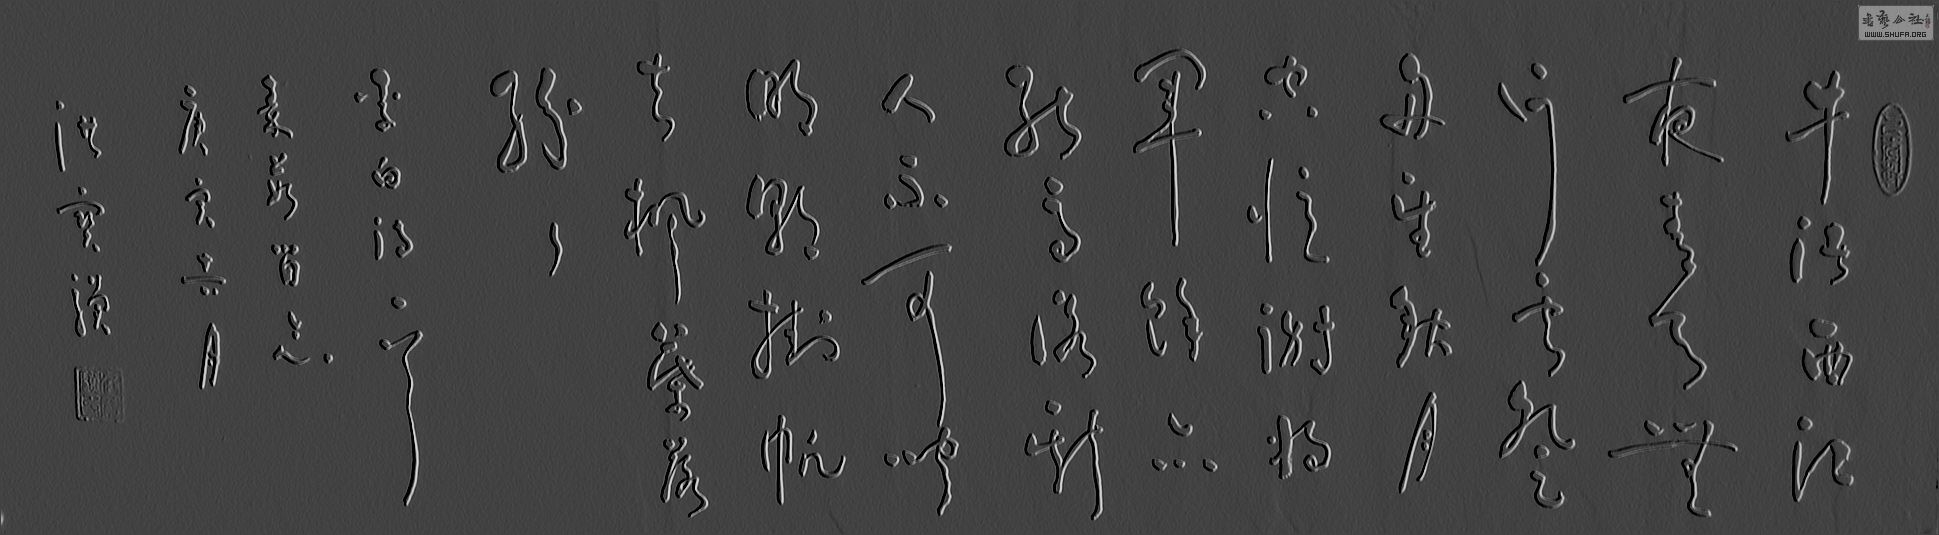 牛渚西江
夜青天無
片雲登
舟望秋月
空憶謝將
軍餘亦
能高詠斯
人不可聞
明朝掛帆
去楓葉落
紛々
李白詩
庚寅六月
書艺公社
WWW.SHUFA.ORG